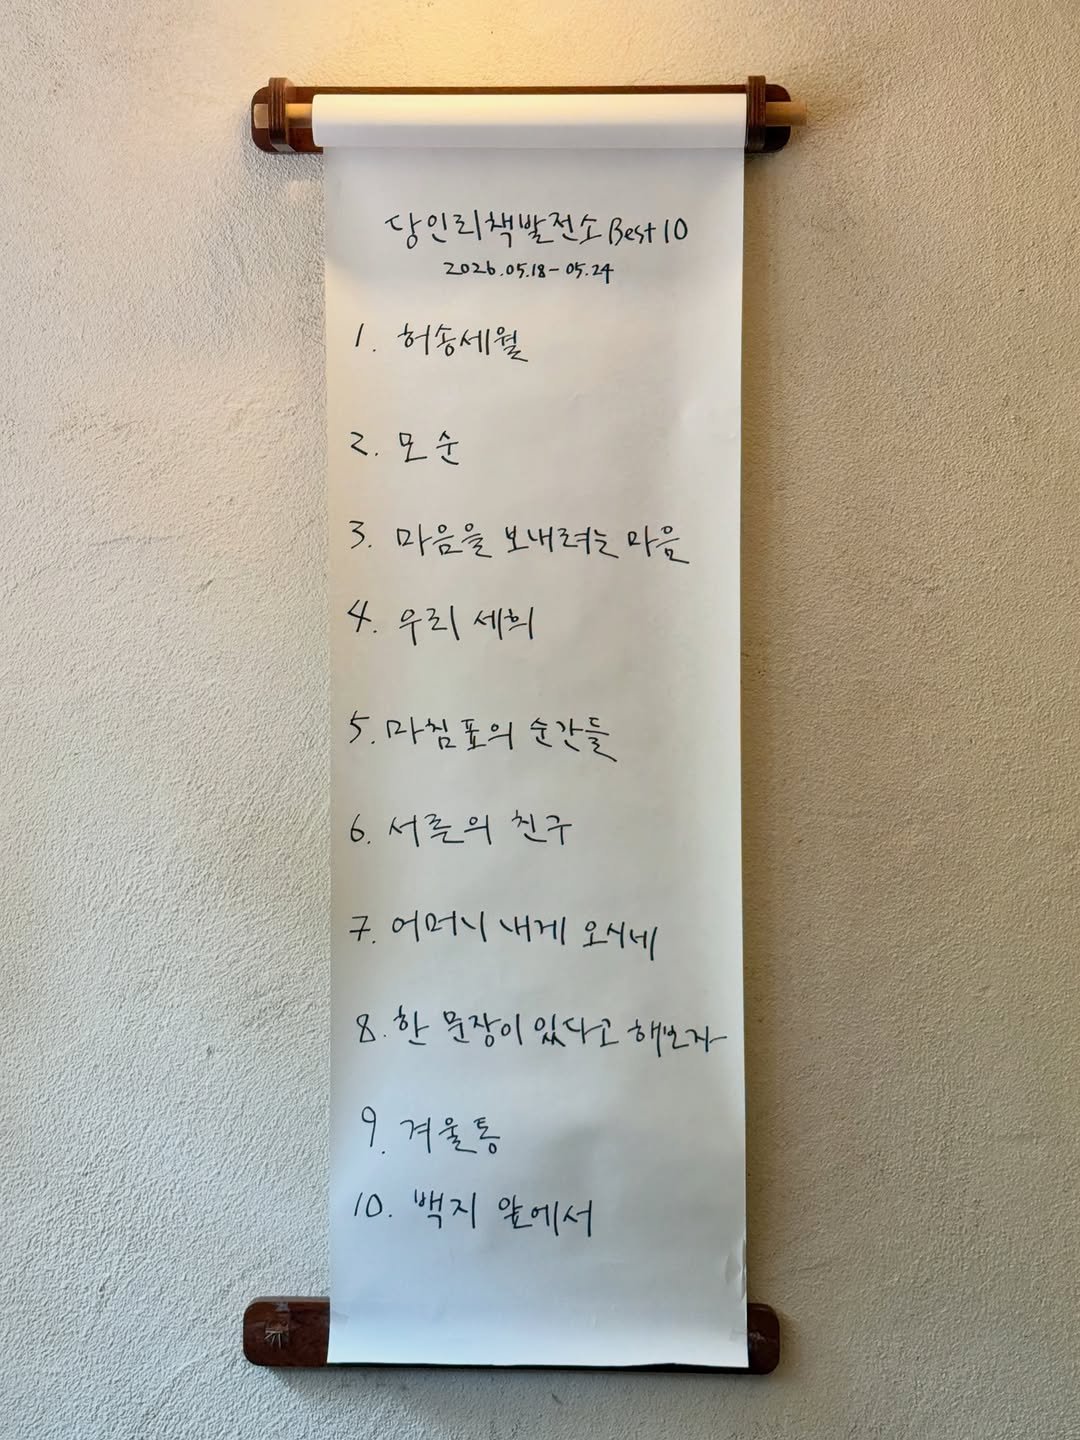 당인리책발전소 Best 10
2026.05.18 - 05.24
1. 허송세월
2. 모순
3. 마음을 보내려는 마음
4. 우리 세희
5. 마침표의 순간들
6. 서른의 친구
7. 어머니 내게 오시네
8. 한 문장이 있다고 해보자
9. 겨울통
10. 백지 앞에서